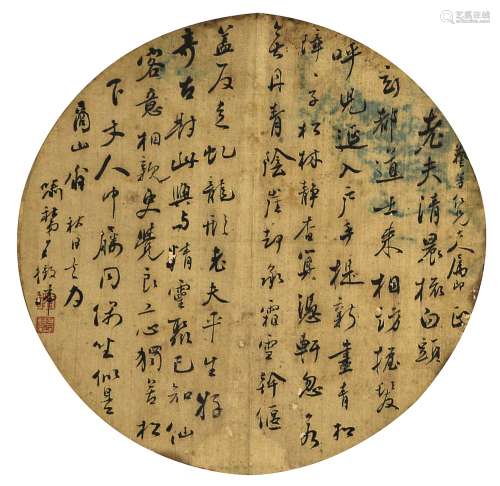 艺狐在线
大人属正
老夫清晨梳白頭
玄都道士来相訪握髮
呼兒延入户手提新畫青松
障〻子松林靜杳冥憑軒忽若
無丹青陰崖却承霜雪幹偃
蓋反走虬龍形老夫平生好
奇古對此興与精靈聚已知仙
客意相親更覺良工心獨苦松
下丈人巾屨同偶坐似是
商山翁 秋日